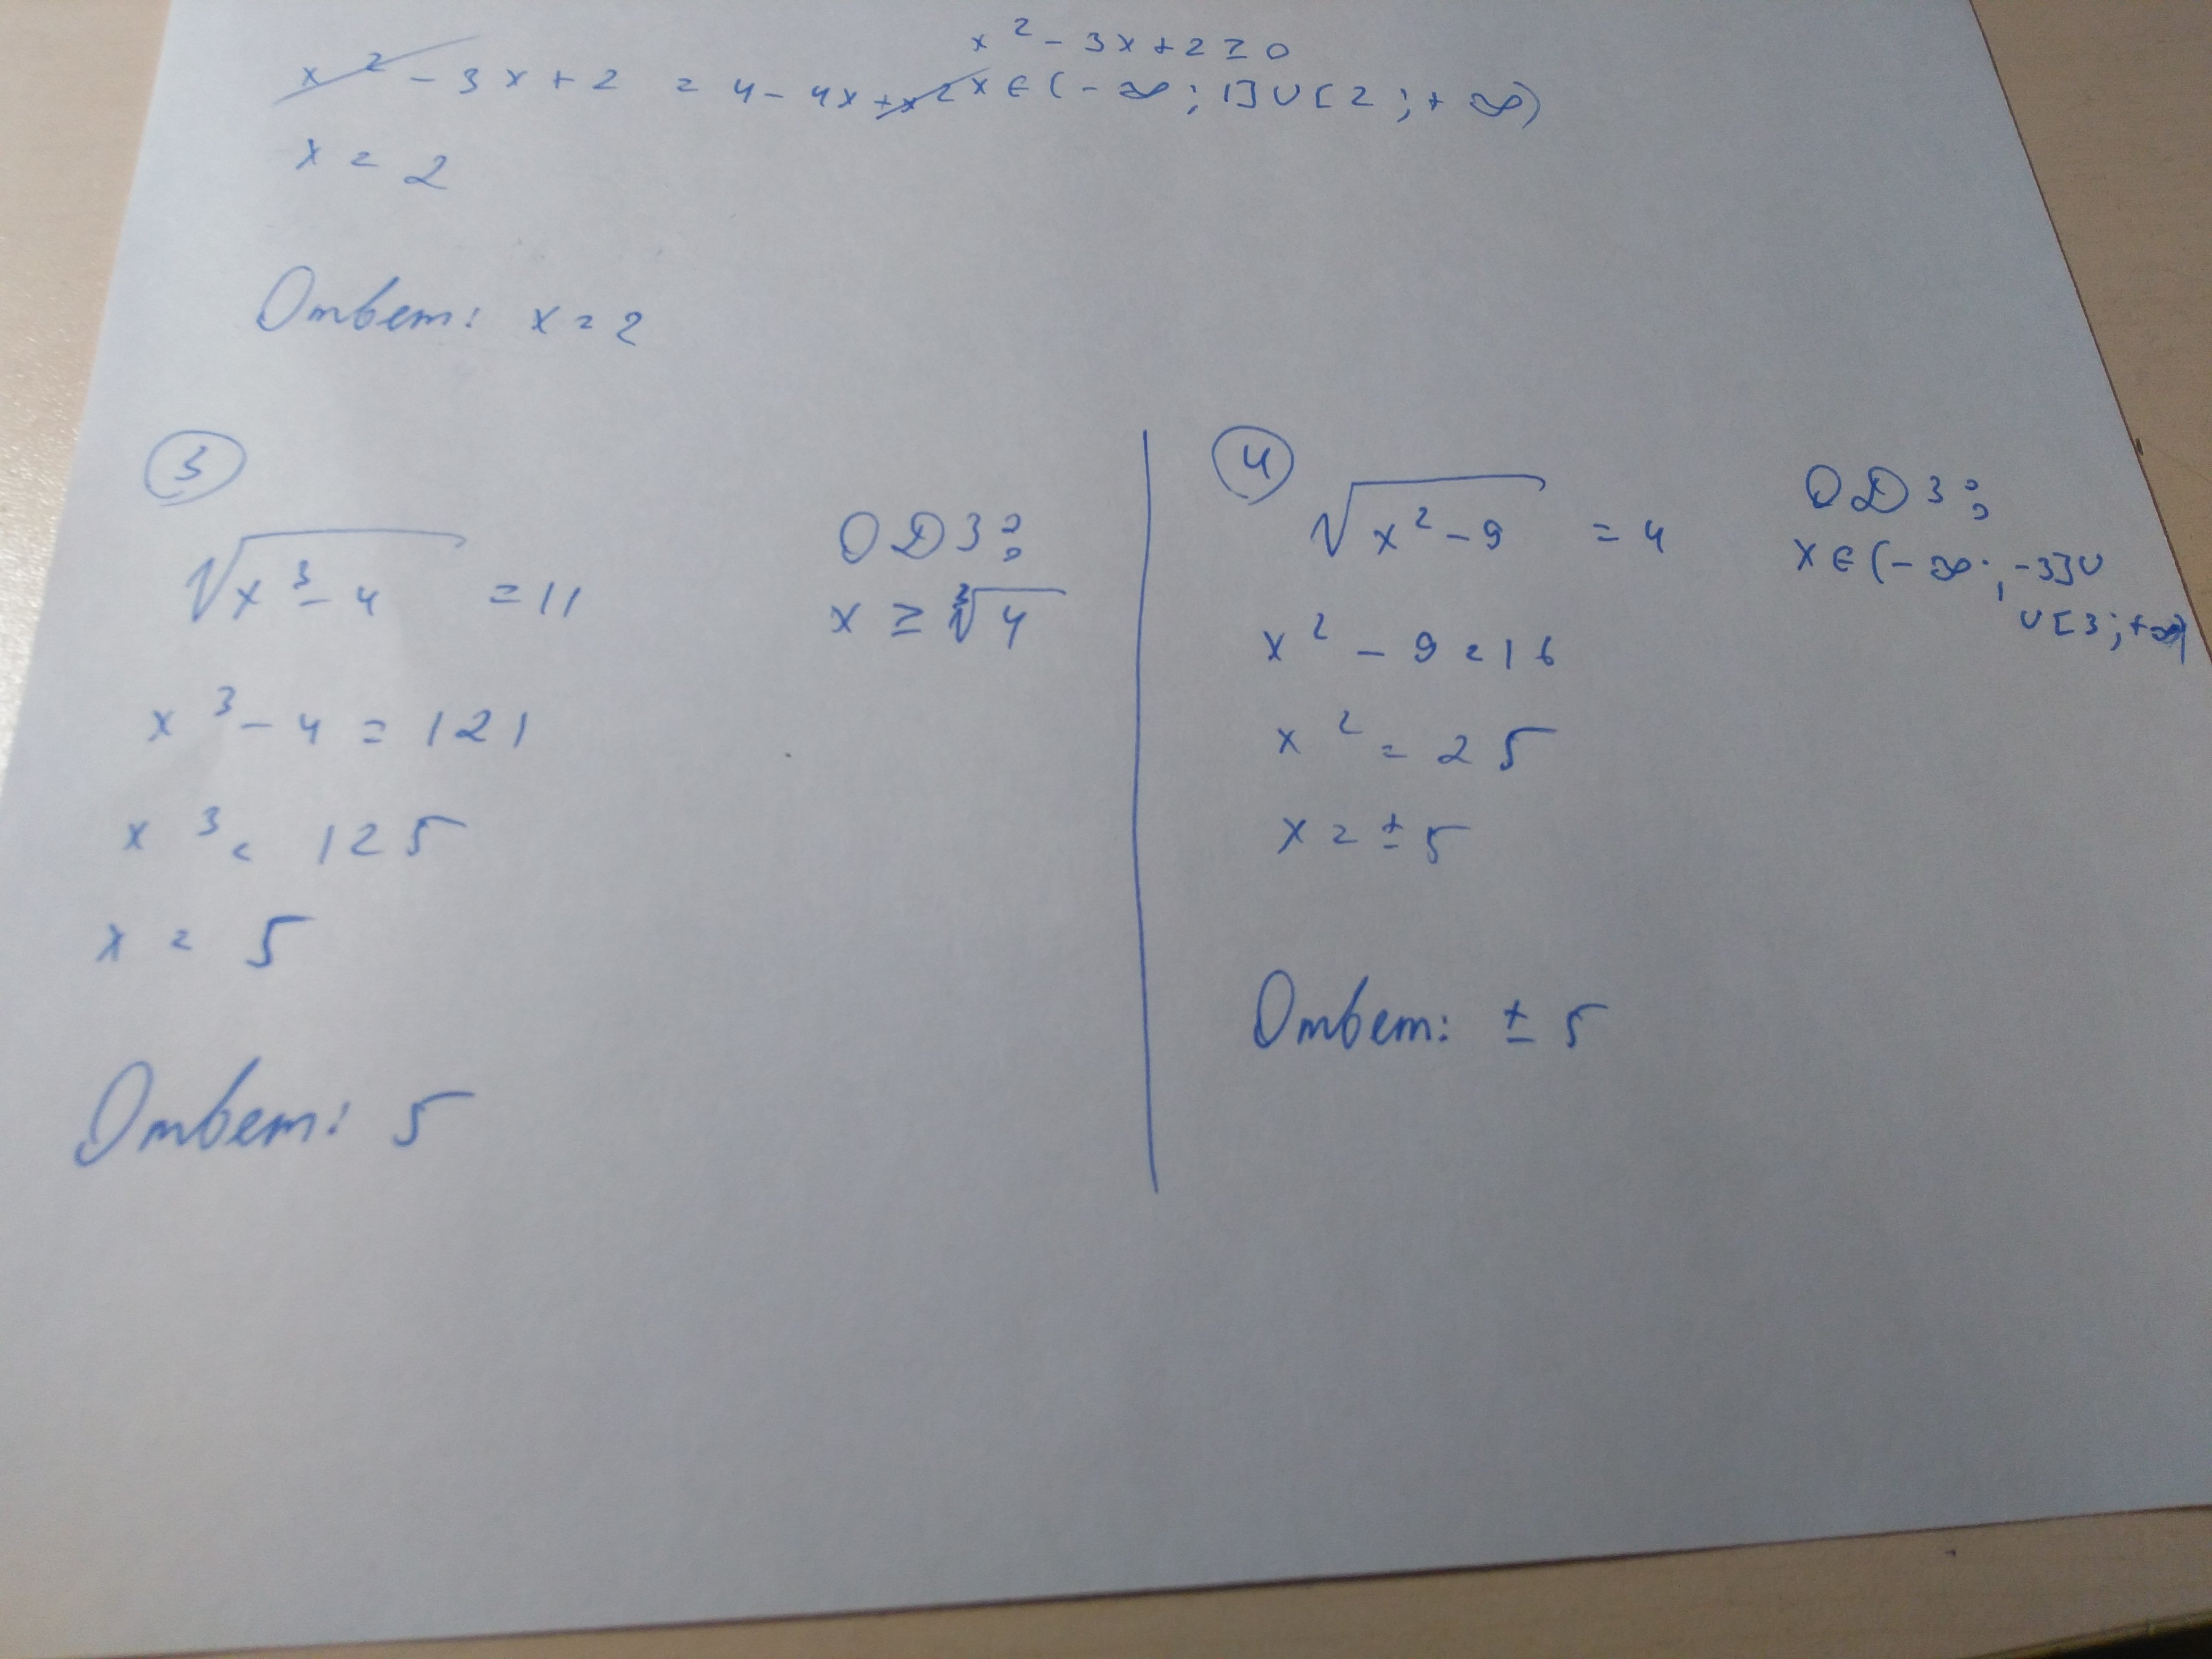 x² - 3x + 2 ≥ 0
x² - 3x + 2 = 4 - 4x + x² x ∈ (-∞; 1] ∪ [2; +∞)
x = 2
Ответ: x = 2
3
√(x³ - 4) = 11
ОДЗ:
x ≥ ∛4
x³ - 4 = 121
x³ = 125
x = 5
Ответ: 5
4
√(x² - 9) = 4
ОДЗ:
x ∈ (-∞; -3] ∪
∪ [3; +∞)
x² - 9 = 16
x² = 25
x = ± 5
Ответ: ± 5